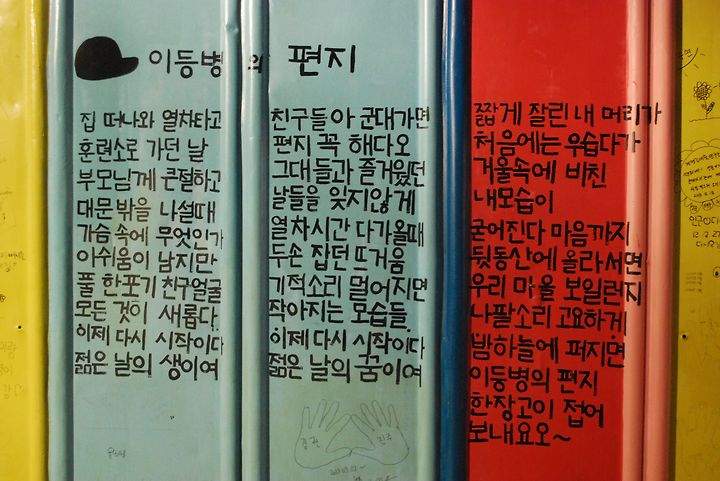 이등병의 편지
집 떠나와 열차타고
훈련소로 가던 날
부모님께 큰절하고
대문 밖을 나설때
가슴 속에 무엇인가
아쉬움이 남지만
풀 한포기 친구얼굴
모든 것이 새롭다.
이제 다시 시작이다
젊은 날의 생이여
친구들아 군대가면
편지 꼭 해다오
그대들과 즐거웠던
날들을 잊지않게
열차시간 다가올때
두손 잡던 뜨거움
기적소리 멀어지면
작아지는 모습들.
이제 다시 시작이다
젊은 날의 꿈이여
짧게 잘린 내 머리가
처음에는 우습다가
거울속에 비친
내모습이
굳어진다 마음까지
뒷동산에 올라서면
우리 마을 보일런지
나팔소리 고요하게
밤하늘에 퍼지면
이등병의 편지
한장고이 접어
보내요오~